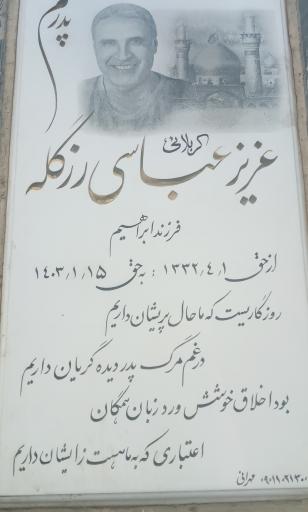 پدرم
کربلائی
عزیز عباسی رزگله
فرزند ابراهیم
از حق ۱۳۳۲/۴/۱ : به حق ۱۴۰۳/۱/۱۵
روزگاریست که ما حال پریشان داریم
در غم مرگ پدر دیده گریان داریم
بود اخلاق خوشش ورد زبان همگان
اعتباری که به ما هست ز ایشان داریم